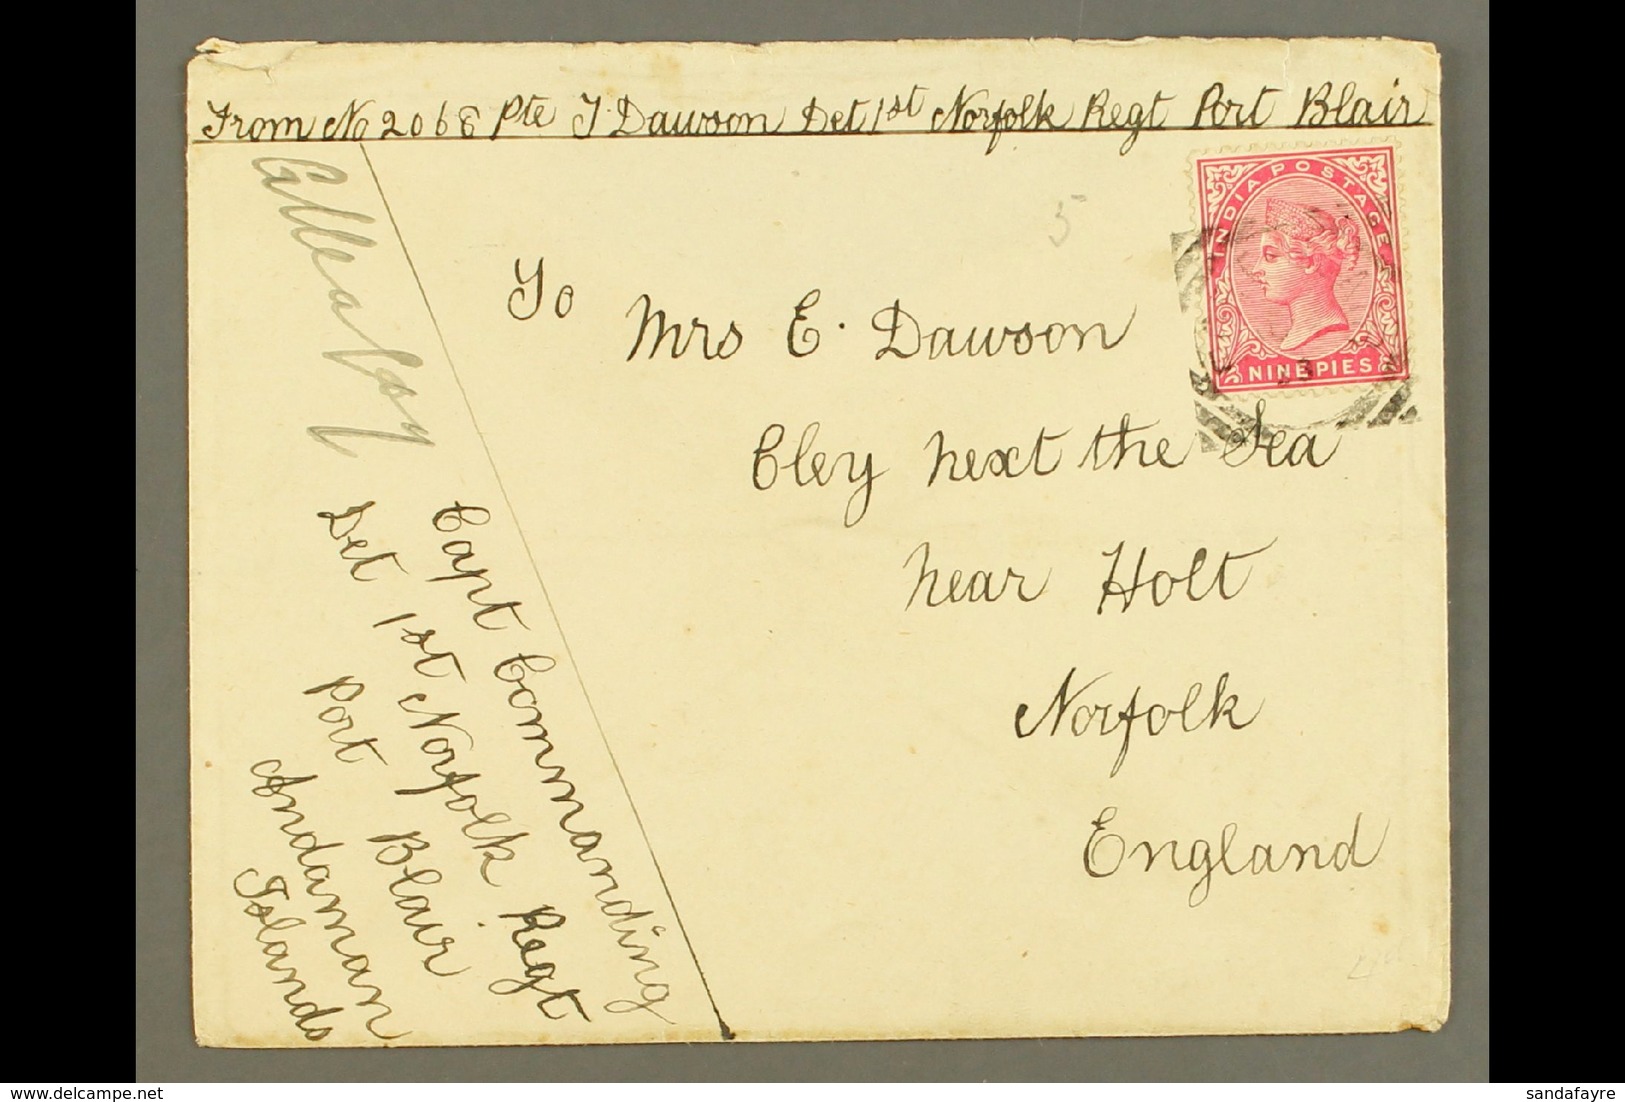 From No 2068 Pte J. Dawson Det 1st Norfolk Regt Port Blair
INDIA POSTAGE
NINE PIES
5
To
Mrs E. Dawson
Cley next the Sea
near Holt
Norfolk
England
Capt Commanding
Det 1st Norfolk Regt
Port Blair
Andaman
Islands
© DELCAMPE
sandafayre